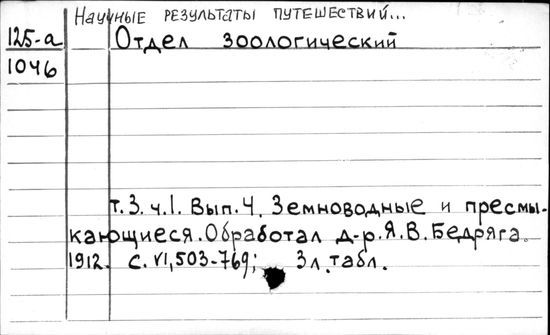 Научные результаты путешествий...
125-а
Отдел зоологический
1046
т.3.ч.1. Вып.4. Земноводные и пресмы-
кающиеся. Обработал д-р.Я.В.Бедряга.
1912. с. VI,503-769; 3л.табл.